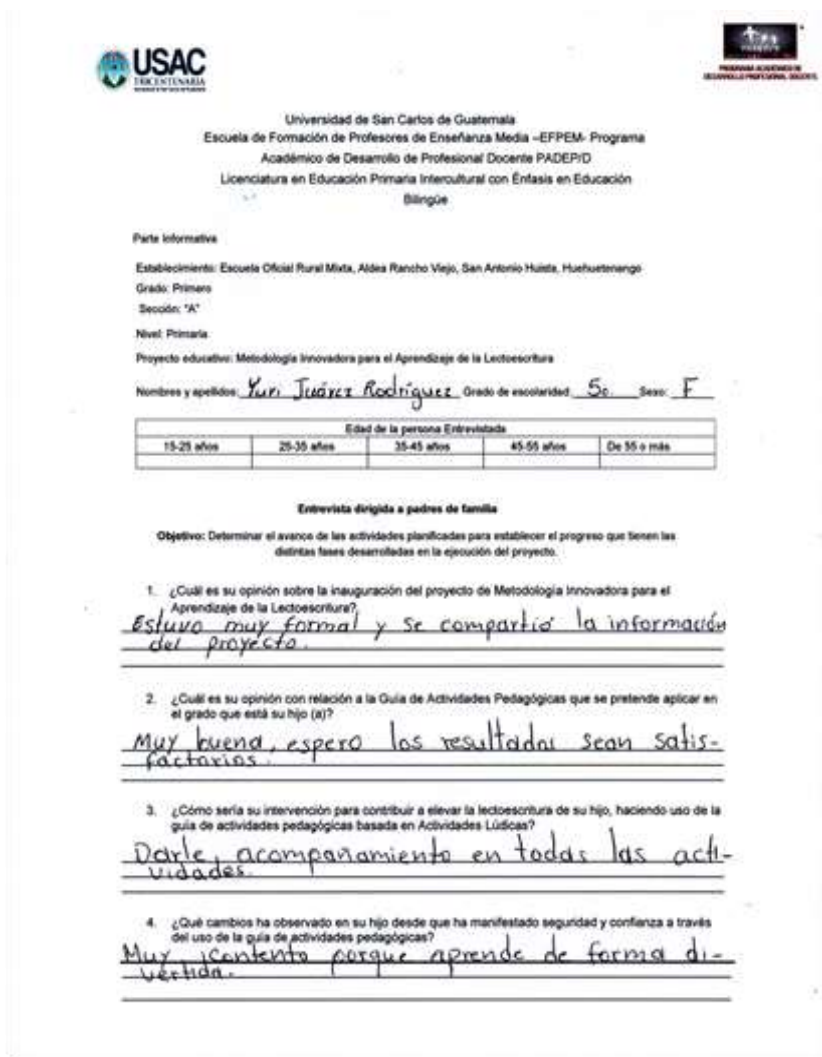 USAC
TRICENTENARIA
PROGRAMA ACADÉMICO DE
DESARROLLO PROFESIONAL DOCENTE
Universidad de San Carlos de Guatemala
Escuela de Formación de Profesores de Enseñanza Media –EFPEM- Programa
Académico de Desarrollo de Profesional Docente PADEP/D
Licenciatura en Educación Primaria Intercultural con Énfasis en Educación
Bilingüe
Parte Informativa
Establecimiento: Escuela Oficial Rural Mixta, Aldea Rancho Viejo, San Antonio Huista, Huehuetenango
Grado: Primero
Sección: "A"
Nivel: Primaria
Proyecto educativo: Metodología Innovadora para el Aprendizaje de la Lectoescritura
Nombres y apellidos: Yuri Juárez Rodríguez Grado de escolaridad: 5o. Sexo: F
Edad de la persona Entrevistada
15-25 años 25-35 años 35-45 años 45-55 años De 55 o más
Entrevista dirigida a padres de familia
Objetivo: Determinar el avance de las actividades planificadas para establecer el progreso que tienen las
distintas fases desarrolladas en la ejecución del proyecto.
1. ¿Cuál es su opinión sobre la inauguración del proyecto de Metodología Innovadora para el
Aprendizaje de la Lectoescritura?
Estuvo muy formal y se compartió la información
del proyecto.
2. ¿Cuál es su opinión con relación a la Guía de Actividades Pedagógicas que se pretende aplicar en
el grado que está su hijo (a)?
Muy buena, espero los resultados sean satis-
factorios.
3. ¿Cómo sería su intervención para contribuir a elevar la lectoescritura de su hijo, haciendo uso de la
guía de actividades pedagógicas basada en Actividades Lúdicas?
Darle acompañamiento en todas las acti-
vidades.
4. ¿Qué cambios ha observado en su hijo desde que ha manifestado seguridad y confianza a través
del uso de la guía de actividades pedagógicas?
Muy contento porque aprende de forma di-
vertida.